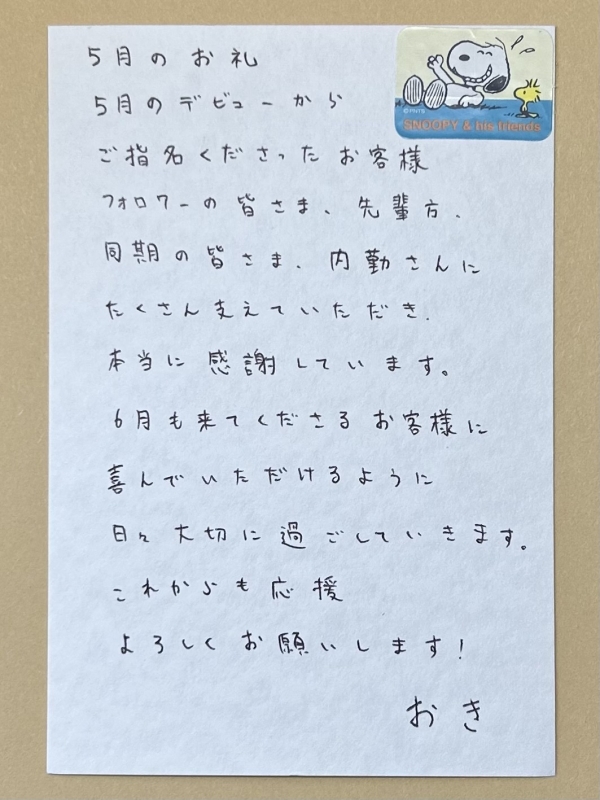 5月のお礼
5月のデビューから
ご指名くださったお客様
フォロワーの皆さま、先輩方、
同期の皆さま、内勤さんに
たくさん支えていただき、
本当に感謝しています。
6月も来てくださるお客様に
喜んでいただけるように
日々大切に過ごしていきます。
これからも応援
よろしくお願いします!
おき
©PNTS
SNOOPY & his friends